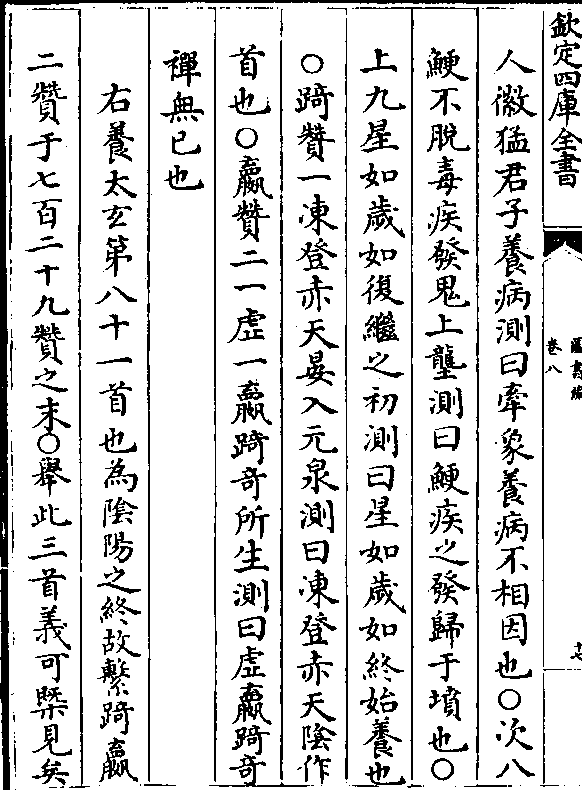 欽定四庫全書
圖書編
卷八
人徽猛君子養病測曰牽象養病不相因也○次八
鯁不脫毒疾發鬼上壟測曰鯁疾之發歸于墳也○
上九星如歲如復繼之初測曰星如歲如終始養也
○踦贊一凍登赤天晏入元泉測曰凍登赤天陰作
首也○嬴贊二一虛一嬴踦奇所生測曰虛嬴踦奇
禪無已也
右養太玄第八十一首也為陰陽之終故繫踦嬴
二贊于七百二十九贊之末○舉此三首義可槩見矣